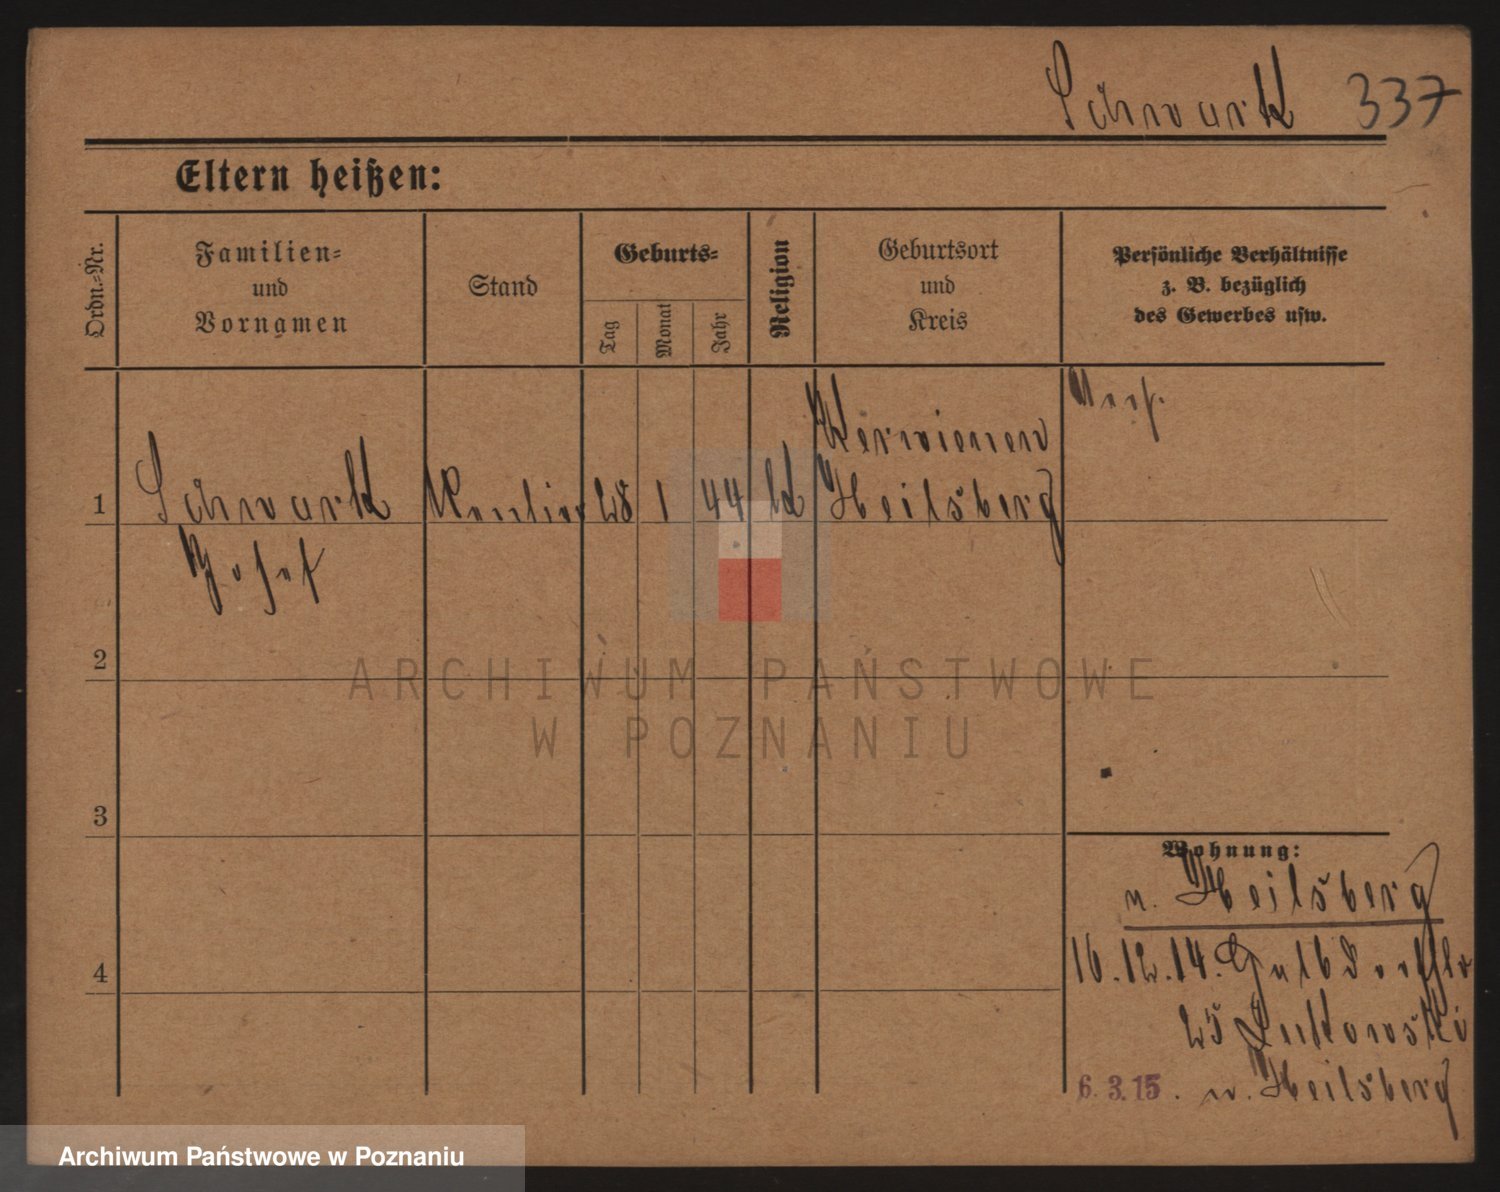 Schwark 337
Eltern heißen:
Ordn.-Nr.
Familien-
und
Vornamen
Stand
Geburts-
Tag
Monat
Jahr
Religion
Geburtsort
und
Kreis
Persönliche Verhältnisse
z. B. bezüglich
des Gewerbes usw.
1 Schwark Rentier 28 1 44 k Kerwienen
Heilsberg
Josef
2
3
4
Wohnung:
n. Heilsberg
16.12.14.
25 Gutkowski
6. 3. 15. n. Heilsberg
ARCHIWUM PAŃSTWOWE
W POZNANIU
Archiwum Państwowe w Poznaniu